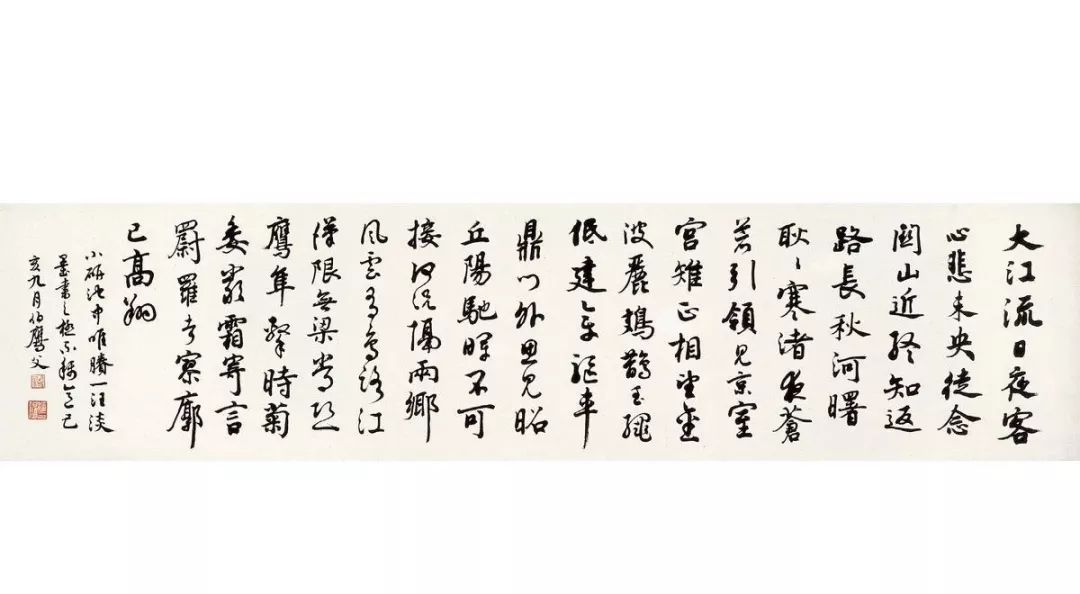 大江流日夜客
心悲未央徒念
關山近終知返
路長秋河曙
耿〻寒渚夜蒼
蒼引領見京室
宮雉正相望金
波麗鳷鵲玉繩
低建章驅車
鼎門外思見昭
丘陽馳暉不可
接何況隔兩鄉
風雲有鳥路江
漢限無梁常恐
鷹隼擊時菊
委嚴霜寄言
罻羅者寥廓
已高翔
小硯池中唯賸一汪淡
墨書之極不稱意己
亥九月伯鷹父